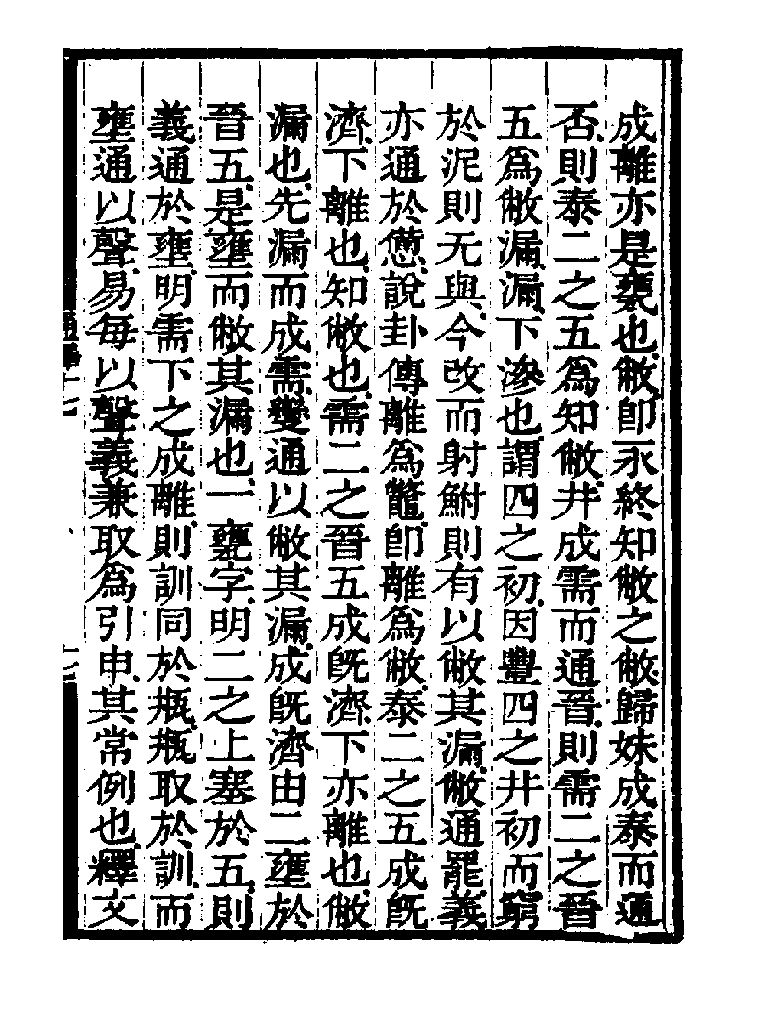 成離亦是甕也敝卽永終知敝之敝歸妹成泰而通
否則泰二之五爲知敝井成需而通晉則需二之晉
五爲敝漏漏下滲也謂四之初因豐四之井初而窮
於泥則无與今改而射鮒則有以敝其漏敝通罷義
亦通於憊說卦傳離爲鼈卽離爲敝泰二之五成旣
濟下離也知敝也需二之晉五成旣濟下亦離也敝
漏也先漏而成需變通以敝其漏成旣濟由二壅於
晉五是壅而敝其漏也一甕字明二之上塞於五則
義通於壅明需下之成離則訓同於瓶瓶取於訓而
壅通以聲易每以聲義兼取爲引申其常例也釋文
十七